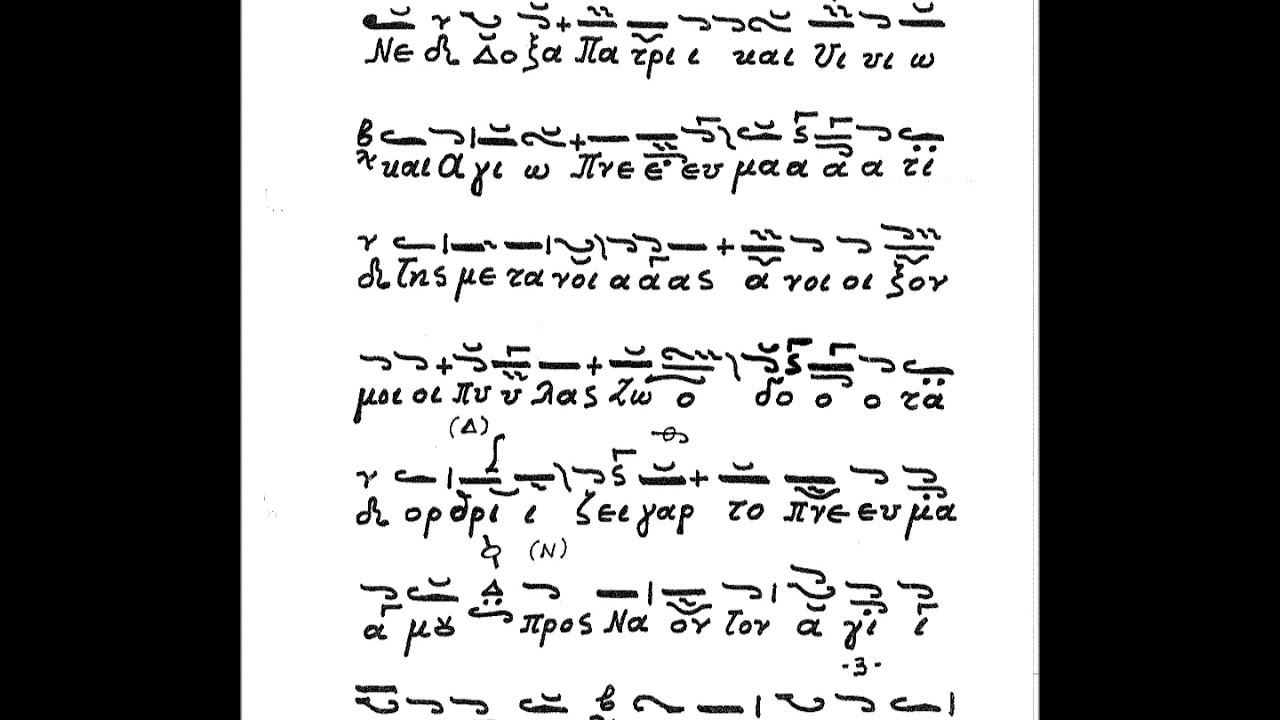 Νε δι Δο ξα Πα τρι ι και Υι υι ω
και Α γι ω Πνε ε ευ μα α α α τι
δι Της με τα νοι α α ας α νοι οι ξον
μοι οι πυ υ λας Ζω ο δο ο ο τα
(Δ)
δι ορ θρι ι ζει γαρ το πνε ευ μα
(Ν)
α μȣ προς Να ον τον α γι ι
-3-